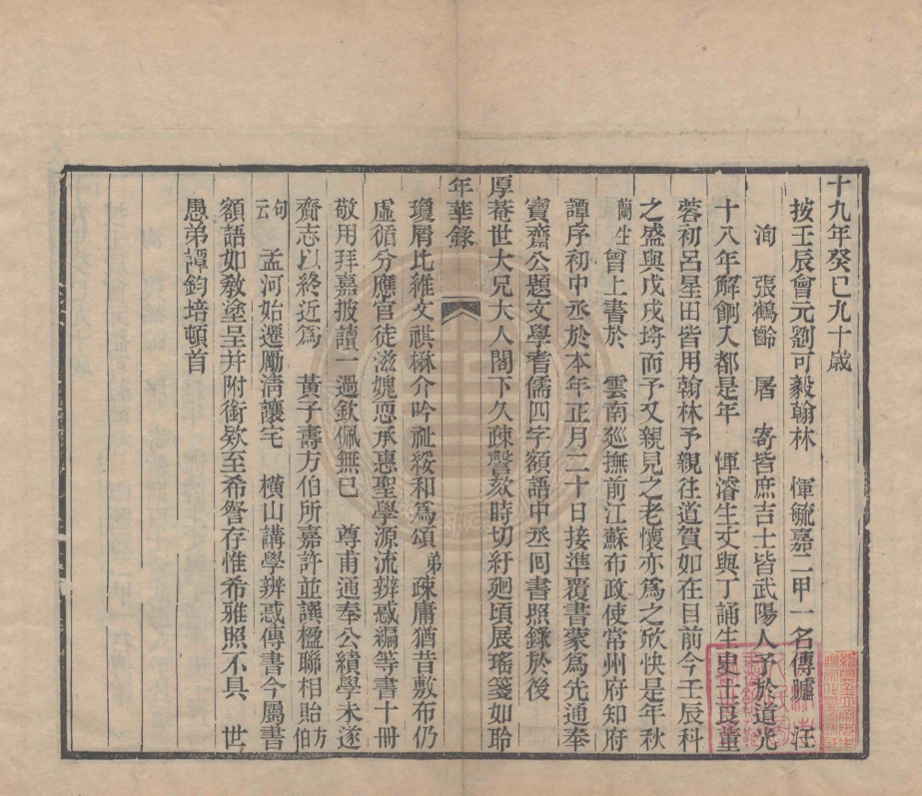 十九年癸巳九十歲
按壬辰會元劉可毅翰林 惲毓嘉二甲一名傳臚 汪
洵 張鶴齡 屠 寄皆庶吉士皆武陽人予於道光
十八年解餉入都是年 惲濬生丈與丁誦生史士良董
蓉初呂星田皆用翰林予親往道賀如在目前今壬辰科
之盛與戊戌埓而予又親見之老懷亦爲之欣快是年秋
蘭生曾上書於 雲南廵撫前江蘇布政使常州府知府
譚序初中丞於本年正月二十日接準覆書蒙爲先通奉
寶齋公題文學耆儒四字額語中丞囘書照錄於後
厚菴世大兄大人閣下久疎聲欬時切紆廻頃展瑤箋如聆
年華錄
瓊屑比維文祺楙介吟祉綏和爲頌弟疎庸猶昔敷布仍
虛循分應官徒滋媿恧承惠聖學源流辨惑編等書十冊
敬用拜嘉披讀一過欽佩無已 尊甫通奉公績學未遂
齎志以終近爲 黃子壽方伯所嘉許並譔楹聯相貽方伯
句云 孟河始遷勵清讓宅 橫山講學辨惑傳書今屬書
額語如敎塗呈并附銜欵至希詧存惟希雅照不具 世
愚弟譚鈞培頓首